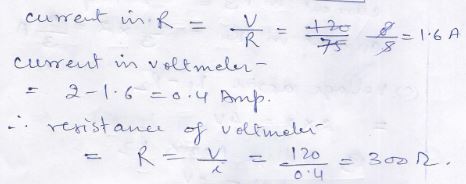 current in R = V/R = 120/75 8/5 = 1.6 A
current in voltmeter
= 2-1.6 = 0.4 Amp.
∴ resistance of voltmeter
= R = V/i = 120/0.4 = 300 Ω.